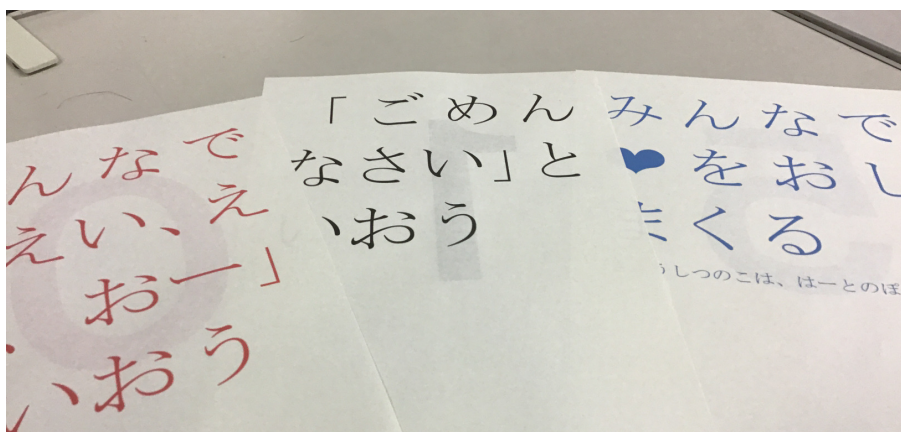 んなで
えい、え
おー」
いおう
「ごめん
なさい」と
いおう
みんなで
♥をおし
まくる
うしつのこは、はーとのぽ